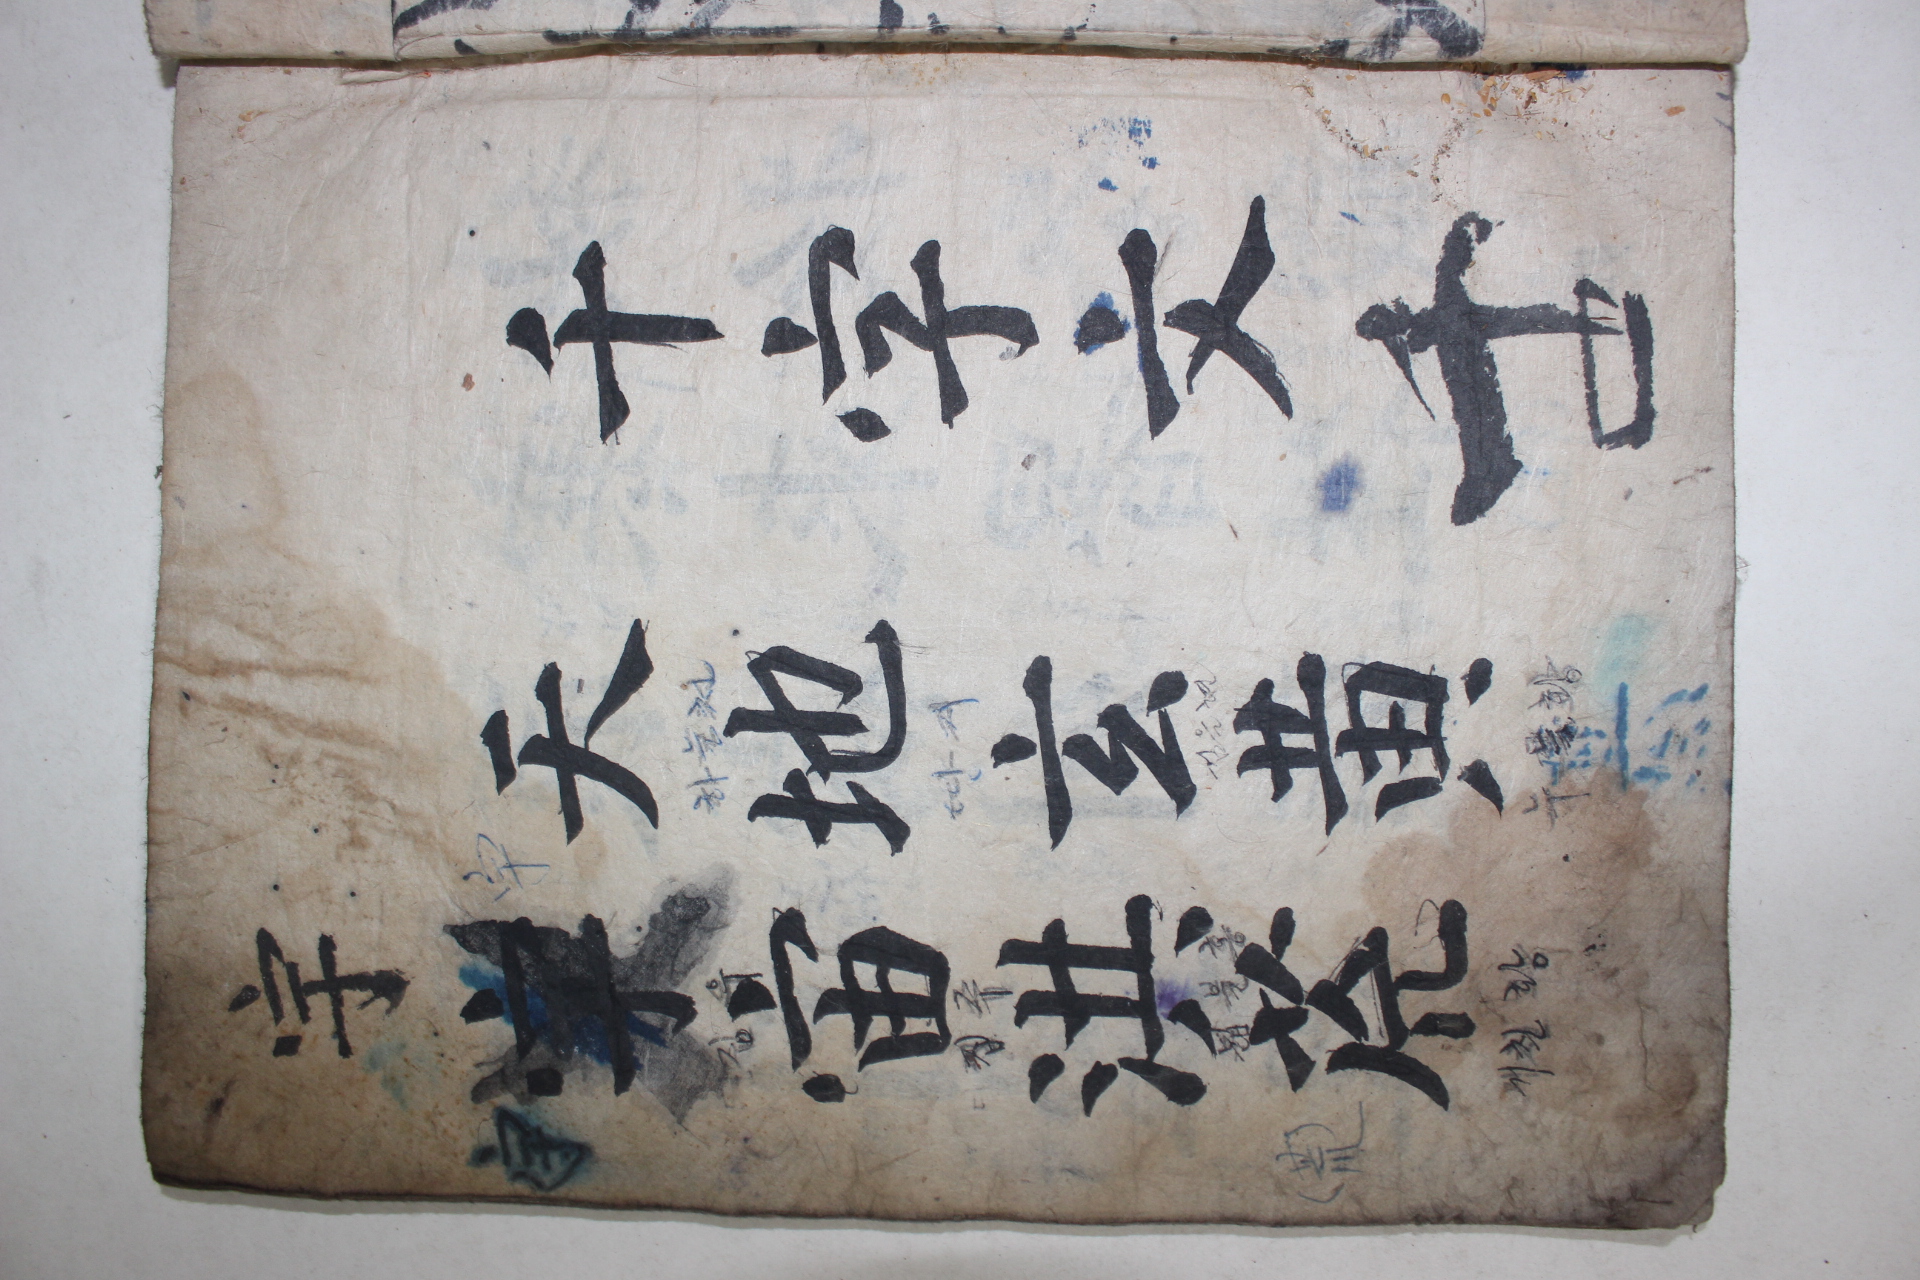 千字文舌
天地玄黄
하늘천
딴지
검을현
누를황
宇
宇宇宙洪荒
宇
집우
집주
넓불홍
거친황
(荒)